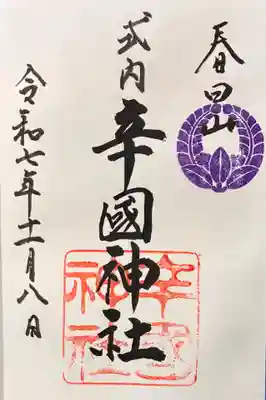 春日山
式内辛國神社
辛國
神社
令和七年十一月八日